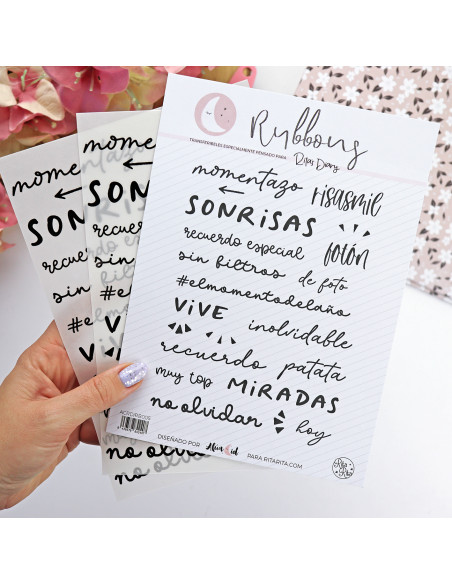 Rubbons
TRANSFERIBLES ESPECIALMENTE PENSADO PARA Ritas Diary
momentazo risasmil
SONRISAS
recuerdo especial fotón
sin filtros de foto
#elmomentodelaño
VIVE inolvidable
recuerdo patata
muy top MIRADAS
no olvidar hoy
DISEÑADO POR PARA RITARITA.COM
Rita Rita
momentazo
SONRISAS
recuerdo
sin
#elmo
VIVE
no olvidar
momen
SONR
recuerdo
sin
#elm
Vi